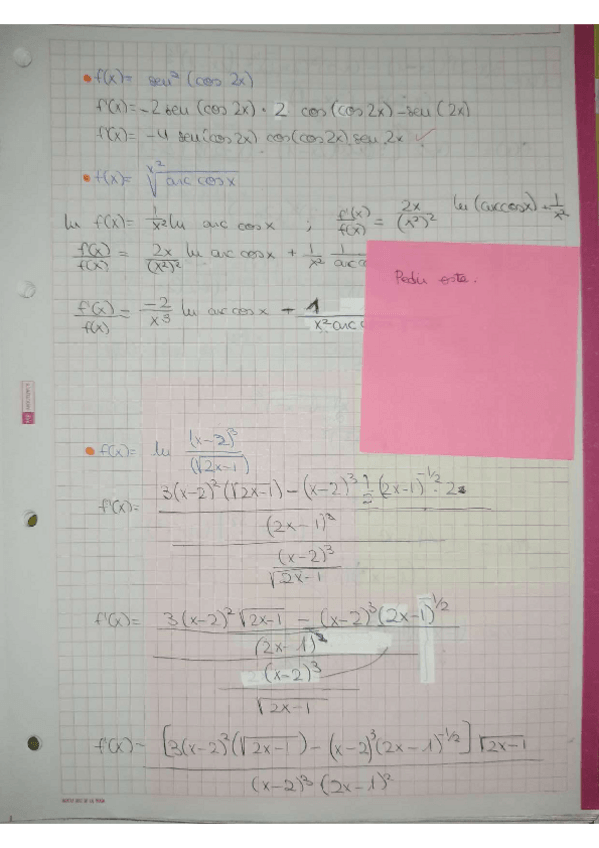 • f(x)= sen² (cos 2x)
f'(x)= -2 sen (cos 2x) • 2 cos (cos 2x) - sen (2x)
f'(x)= -4 sen (cos 2x) cos (cos 2x) sen 2x ✓
• f(x)= \sqrt[x²]{arc cos x}
ln f(x)= 1/x² ln arc cos x ; f'(x)/f(x) = 2x/(x²)² ln (arc cos x) + 1/x²
f'(x)/f(x) = 2x/(x²)² ln arc cos x + 1/x² 1/arc
Pedir este.
f'(x)/f(x) = -2/x³ ln arc cos x + 1/x² arc
• f(x)= ln (x-2)³/(√2x-1)
f'(x)= 3(x-2)² (√2x-1) - (x-2)³ 1/2 (2x-1)^-1/2 · 2
(2x-1)³
(x-2)³
√2x-1
f'(x)= 3(x-2)² √2x-1 - (x-2)³ (2x-1)^1/2
(2x-1)²
(x-2)³
√2x-1
f'(x)= [3(x-2)² (√2x-1) - (x-2)³ (2x-1)^-1/2] √2x-1
(x-2)³ (2x-1)²